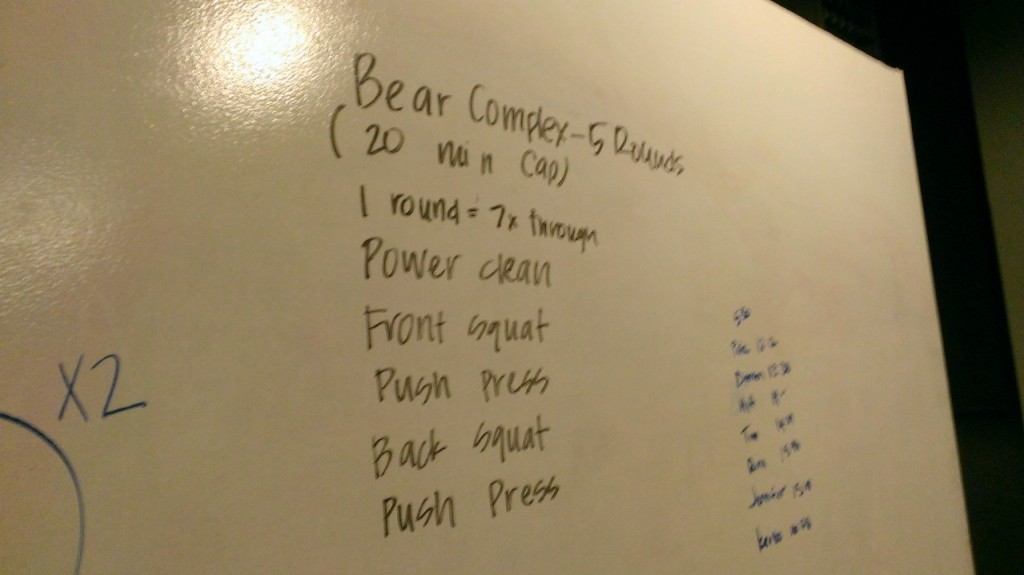 Bear Complex - 5 Rounds
(20 min Cap)
1 round = 7x through
Power clean
Front squat
Push Press
Back squat
Push Press
X2